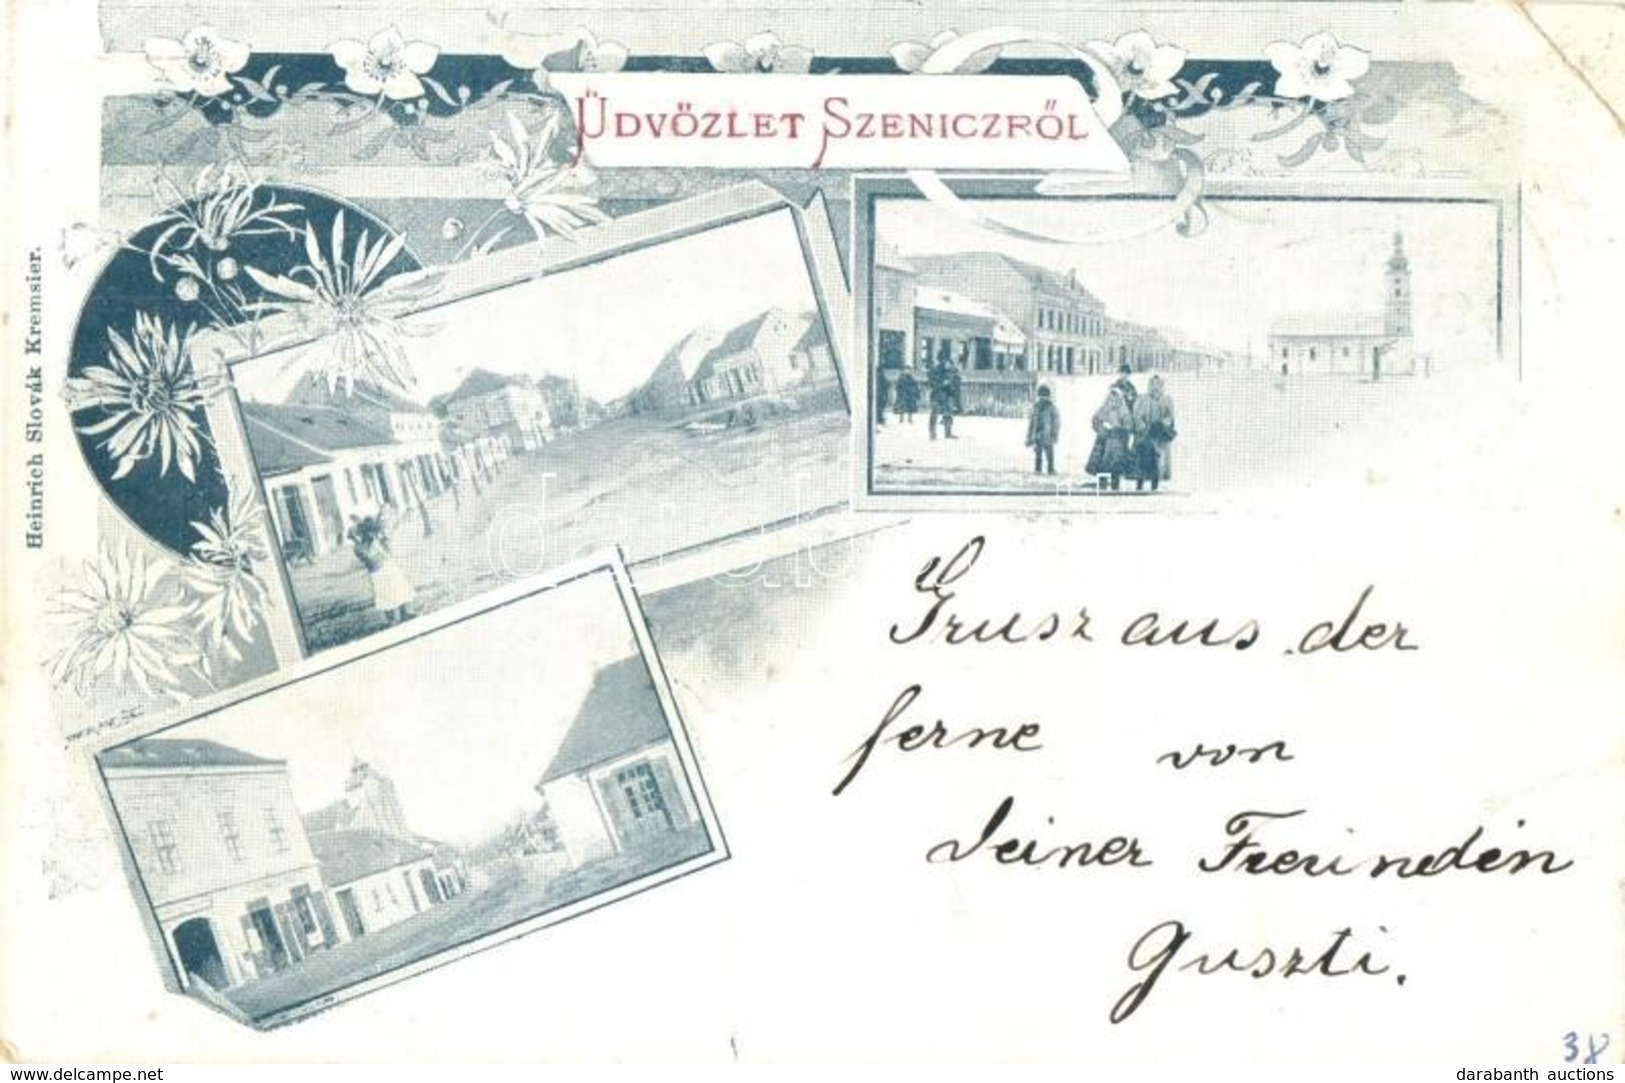 ÜDVÖZLET SZENICZRŐL
Heinrich Slovák Kremsier.
Grusz aus der
ferne von
deiner Freundin
Guszti.
38
www.delcampe.net
darabanth auctions